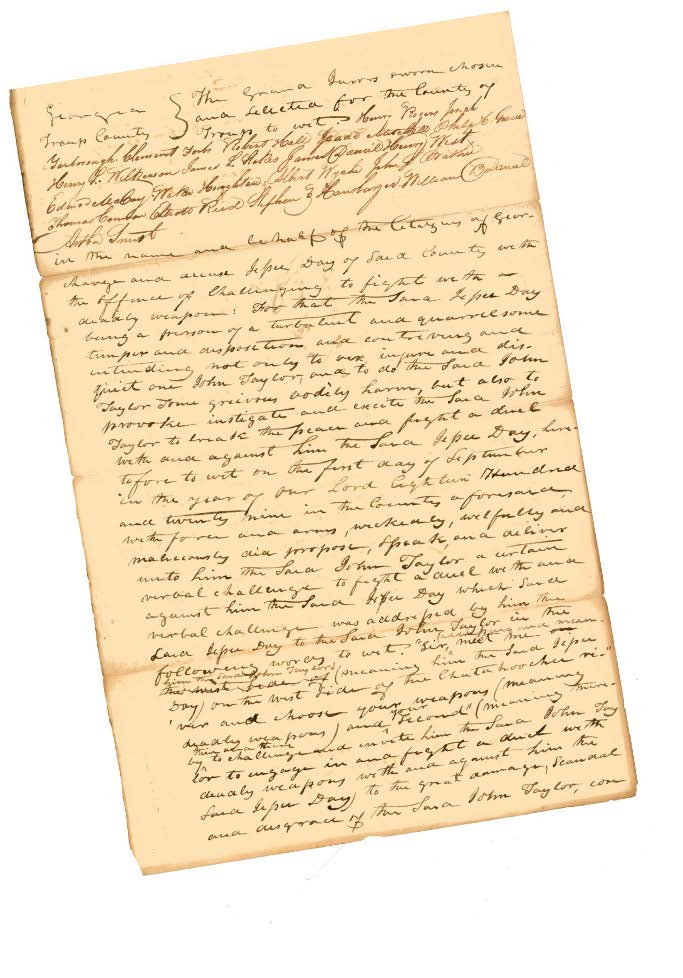 Georgia } The Grand Jurors sworn chosen
Troup County } and selected for the County of
Troup to wit: Henry Rogers Joseph
Yarborough Clement Forbs Robert Hall Isaac Mitchell Philip H Greene
Henry P. Wilkinson James L Hicks James Daniel Henry West
Edmd McCoy Hugh Albert Wyche John
Thomas Cameron Elliott Reed Stephen G Hansberger William B Daniel
Arthur
in the name and behalf of the Citizens of Geor-
charge and accuse Jesse Day of Said County with
the offence of Challenging to fight with a
deadly weapon: For that the Said Jesse Day
being a person of a turbulent and quarrelsome
temper and disposition and contriving and
intending not only to vex injure and dis-
quiet one John Taylor, and to do the Said John
Taylor Some grievous bodily harm, but also to
provoke instigate and excite the Said John
Taylor to break the peace and fight a duel
with and against him the Said Jesse Day, here-
tofore to wit on the first day of September
in the year of our Lord Eighteen Hundred
and twenty nine in the County aforesaid,
with force and arms, wickedly, wilfully and
maliciously did propose, Speak, and deliver
unto him the Said John Taylor a certain
verbal challenge to fight a duel with and
against him the Said Jesse Day which Said
verbal challenge was addressed by him the
Said Jesse Day to the Said John Taylor in the
following words to wit: "Sir, meet me on
him the Said John Taylor)
the west Side of (meaning him the Said Jesse
Day) on the west Side of the Chatahoochee ri-
ver and choose your weapons (meaning
deadly weapons) and your "Second" (meaning there-
then and there
by to challenge and invite him the Said John Tay
lor to engage in and fight a duel with
deadly weapons with and against him the
Said Jesse Day) to the great damage, Scandal
and disgrace of the Said John Taylor, con